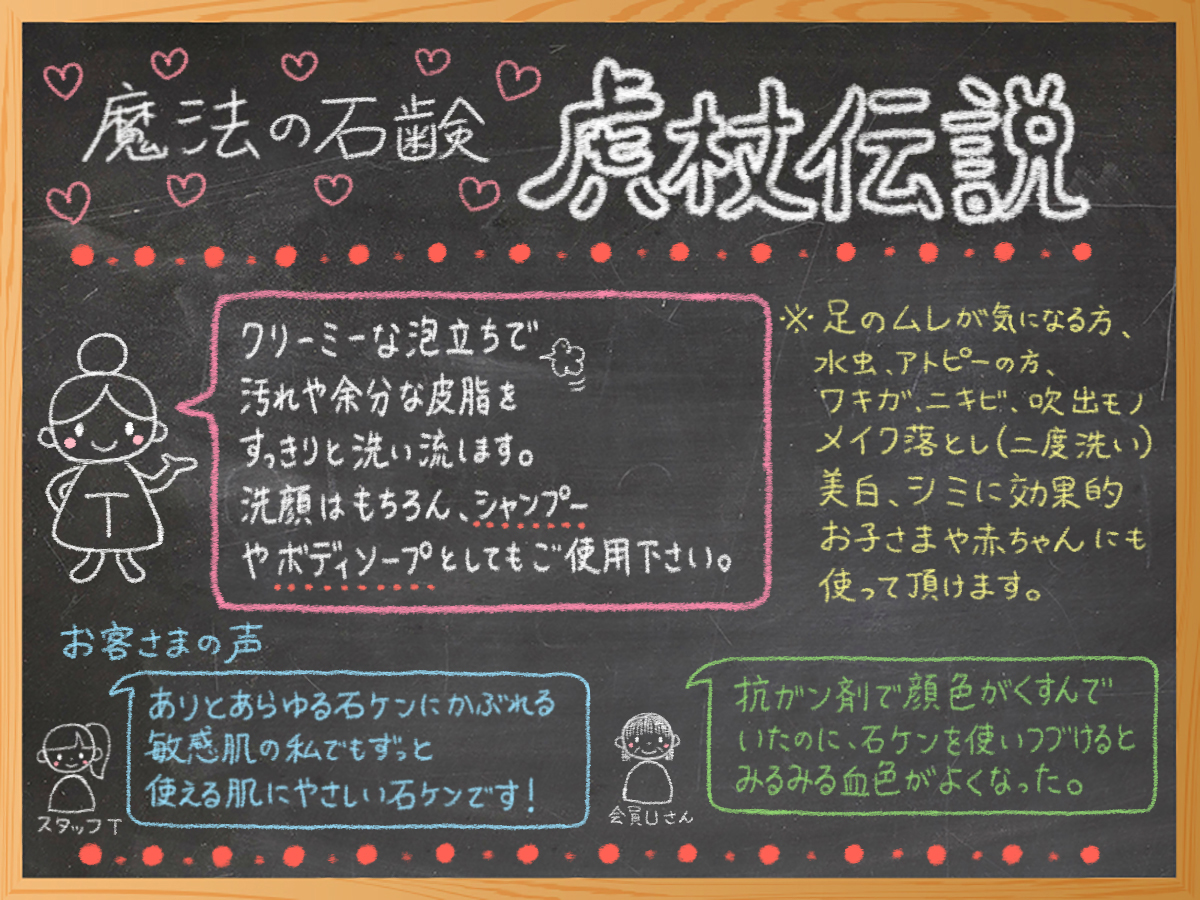 魔法の石鹸 虎杖伝説
クリーミーな泡立ちで
汚れや余分な皮脂を
すっきりと洗い流します。
洗顔はもちろん、シャンプー
やボディソープとしてもご使用下さい。
T
※足のムレが気になる方、
水虫、アトピーの方、
ワキガ、ニキビ、吹出モノ
メイク落とし(二度洗い)
美白、シミに効果的
お子さまや赤ちゃんにも
使って頂けます。
お客さまの声
ありとあらゆる石ケンにかぶれる
敏感肌の私でもずっと
使える肌にやさしい石ケンです!
スタッフT
抗ガン剤で顔色がくすんで
いたのに、石ケンを使いつづけると
みるみる血色がよくなった。
会員Uさん